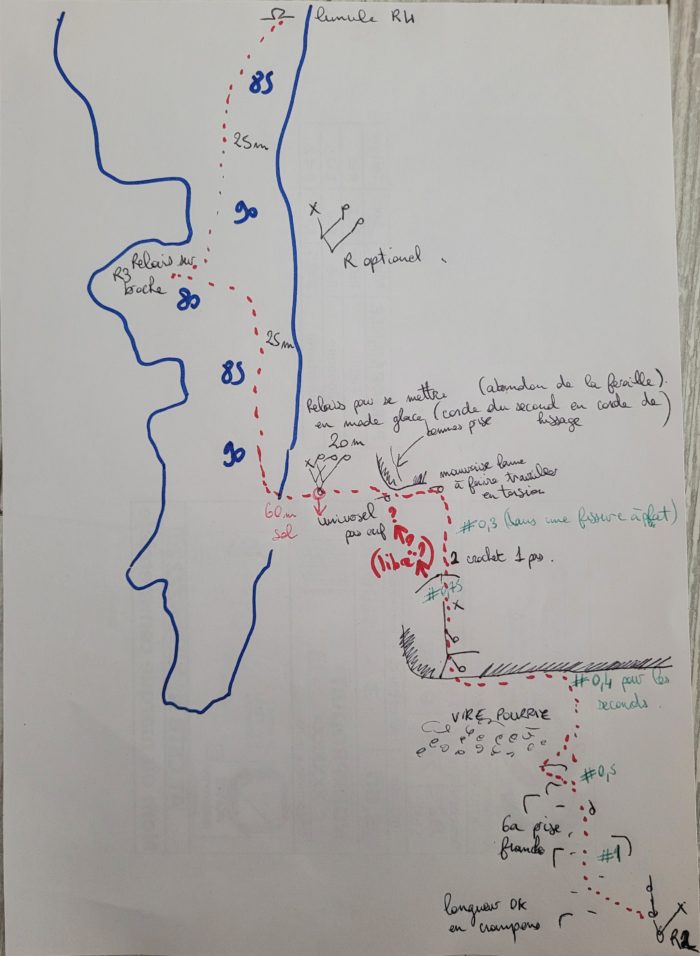 lunule R4
85
25m
90
R optionel.
Relais sur
R3 broche
80
25m
85
90
Relais pour se mettre (abandon de la feraille).
en mode glace (corde du second en corde de hissage)
20m
bonnes prise
mauvaise lame
à faire travailler
en torsion
60m
sol
universel
pas ouf
?
?
?
(libre)
#0,3 (dans une fissure à plat)
1 crochet 1 pas.
#0,75
#0,4 pour les
seconds.
VIRE POURRIE
#0,5
6a prise
franche
#1
longueur OK
en crampons
R2